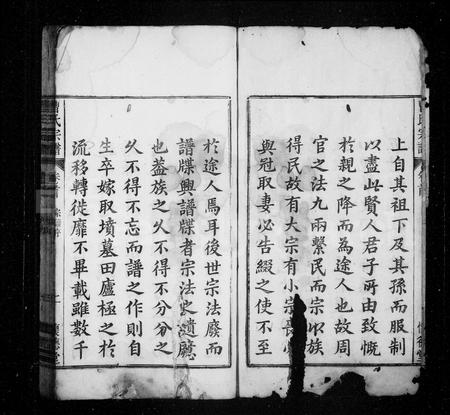 上自其祖下及其孫而服制
以盡此賢人君子所由致慨
於親之降而為途人也故周
官之法九兩繫民而宗以族
得民故有大宗有小宗長
與冠取妻必告綴之使不至
於途人焉耳後世宗法廢而
譜牒興譜牒者宗法之遺意
也蓋族之久不得不分分之
久不得不忘而譜之作則自
生卒嫁取墳墓田廬極之於
流移轉徙靡不畢載雖數千
氏宗譜
卷首